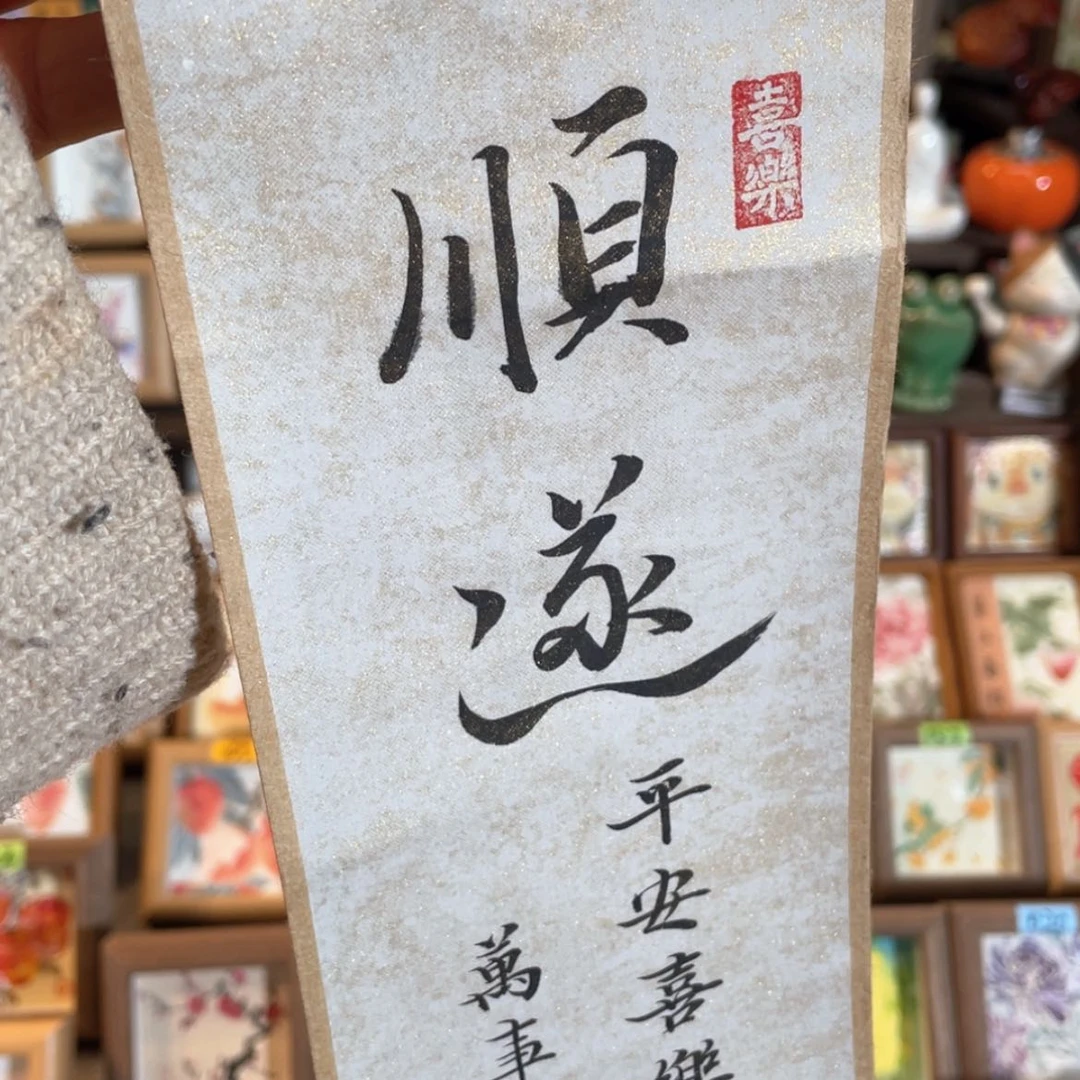 喜樂
順遂
平安喜樂
萬事